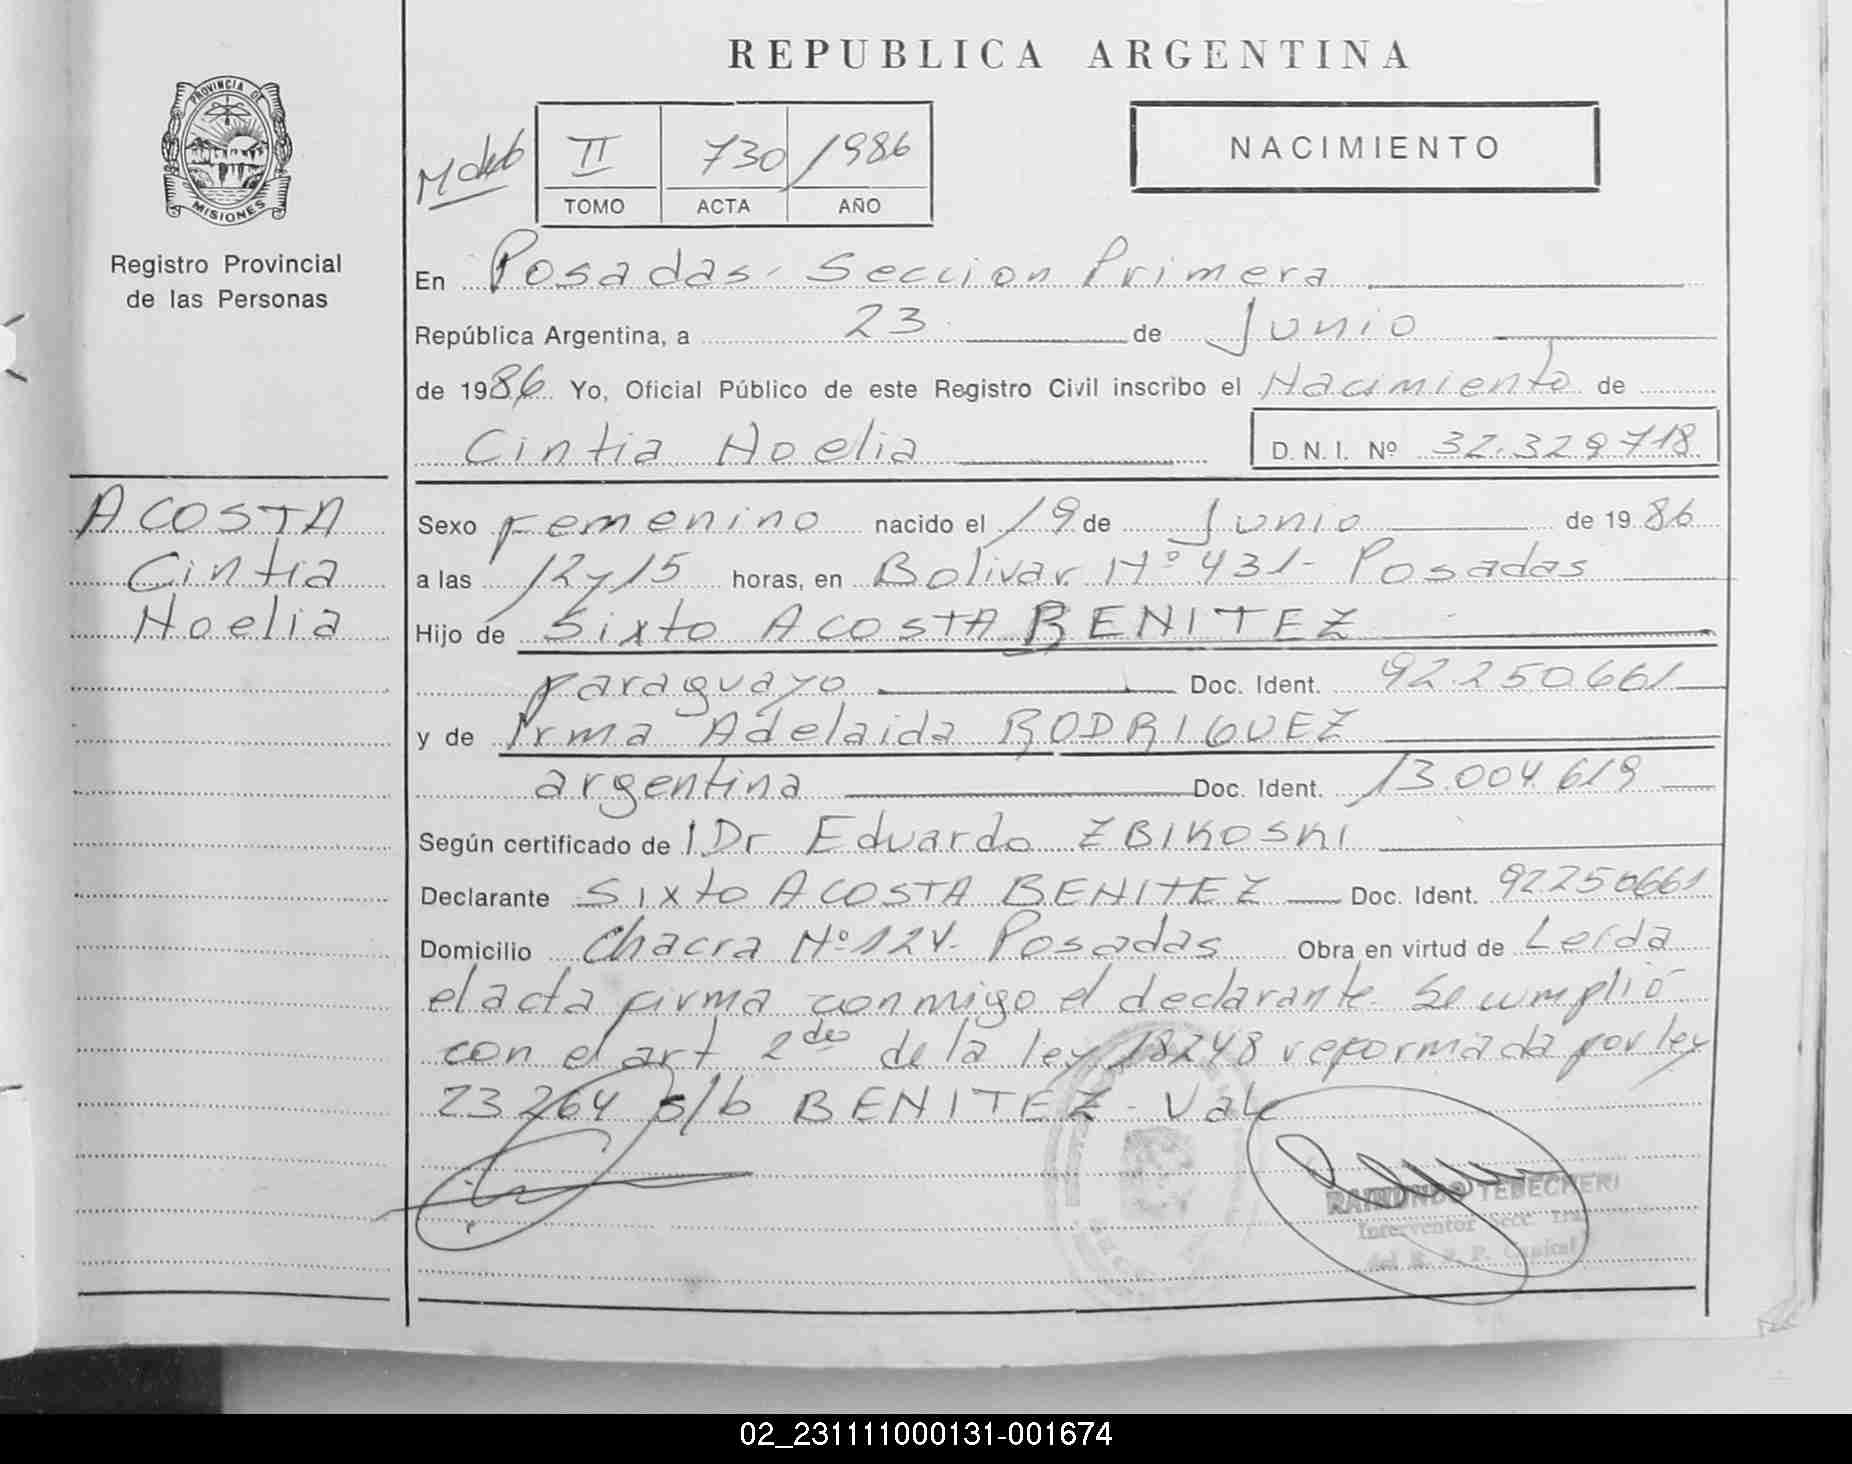 REPUBLICA ARGENTINA
PROVINCIA DE MISIONES
Registro Provincial
de las Personas
II 730 1986
TOMO ACTA AÑO
NACIMIENTO
En Posadas - Seccion Primera
República Argentina, a 23 de Junio
de 1986 Yo, Oficial Público de este Registro Civil inscribo el Nacimiento de
Cintia Noelia D. N. I. Nº 32.329718
ACOSTA
Cintia
Noelia
Sexo Femenino nacido el 19 de Junio de 1986
a las 12 y 15 horas, en Bolivar Nº 431 - Posadas
Hijo de Sixto ACOSTA BENITEZ
paraguayo Doc. Ident. 92.250.661
y de Irma Adelaida RODRIGUEZ
argentina Doc. Ident. 13.004.619
Según certificado de Dr Eduardo ZBIKOSKI
Declarante Sixto ACOSTA BENITEZ Doc. Ident. 92250661
Domicilio Chacra Nº Posadas Obra en virtud de Leida
el acta firma conmigo el declarante. Se cumplió
con el art 2do de la ley 18248 reformada por ley
23264 s/b BENITEZ - Vale
RAIMUNDO TEBECHERI
Interventor Secc. 1ra
del R. P. P. Capital
02_231111000131-001674